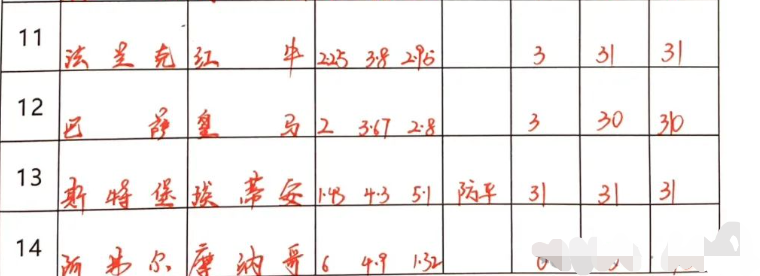 11 法兰克 红牛 2.25 3.8 2.95 3 31 31
12 巴萨 皇马 2 3.67 2.8 3 30 30
13 斯特堡 埃蒂安 1.43 4.3 5.1 防平 31 31 31
14 阿易尔 摩纳哥 6 4.9 1.32